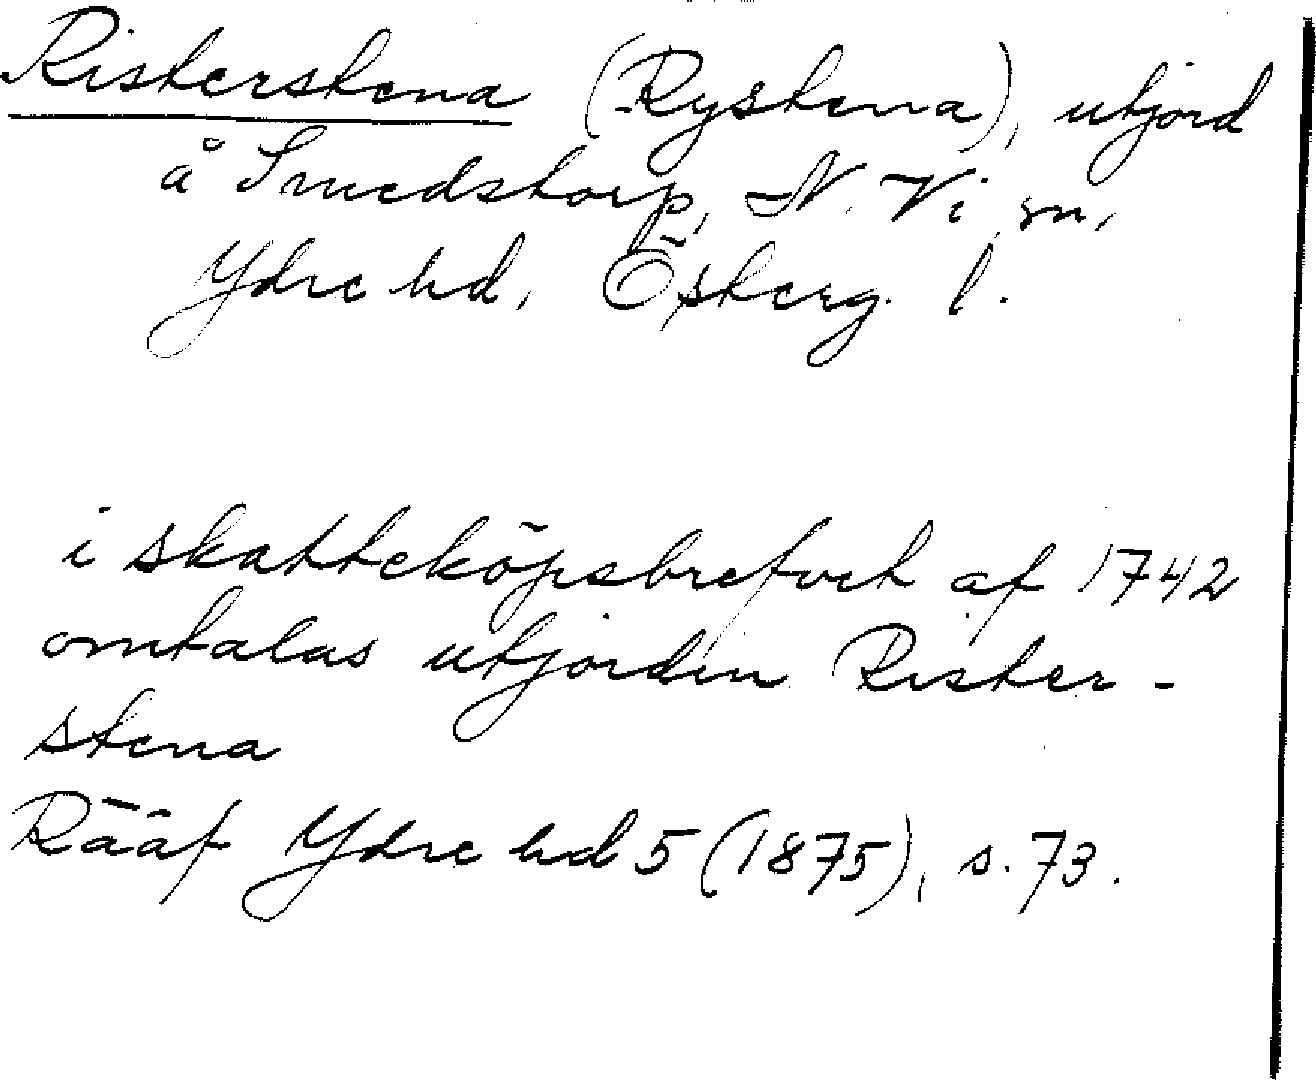 Risterstena (Rystena), utjord
å Smedstorp, N. Vi sn,
Ydre hd, Österg. l.
i skatteköpsbrefvet af 1742
omtalas utjorden Rister-
stena
Rääf Ydre hd 5 (1875), s. 73.